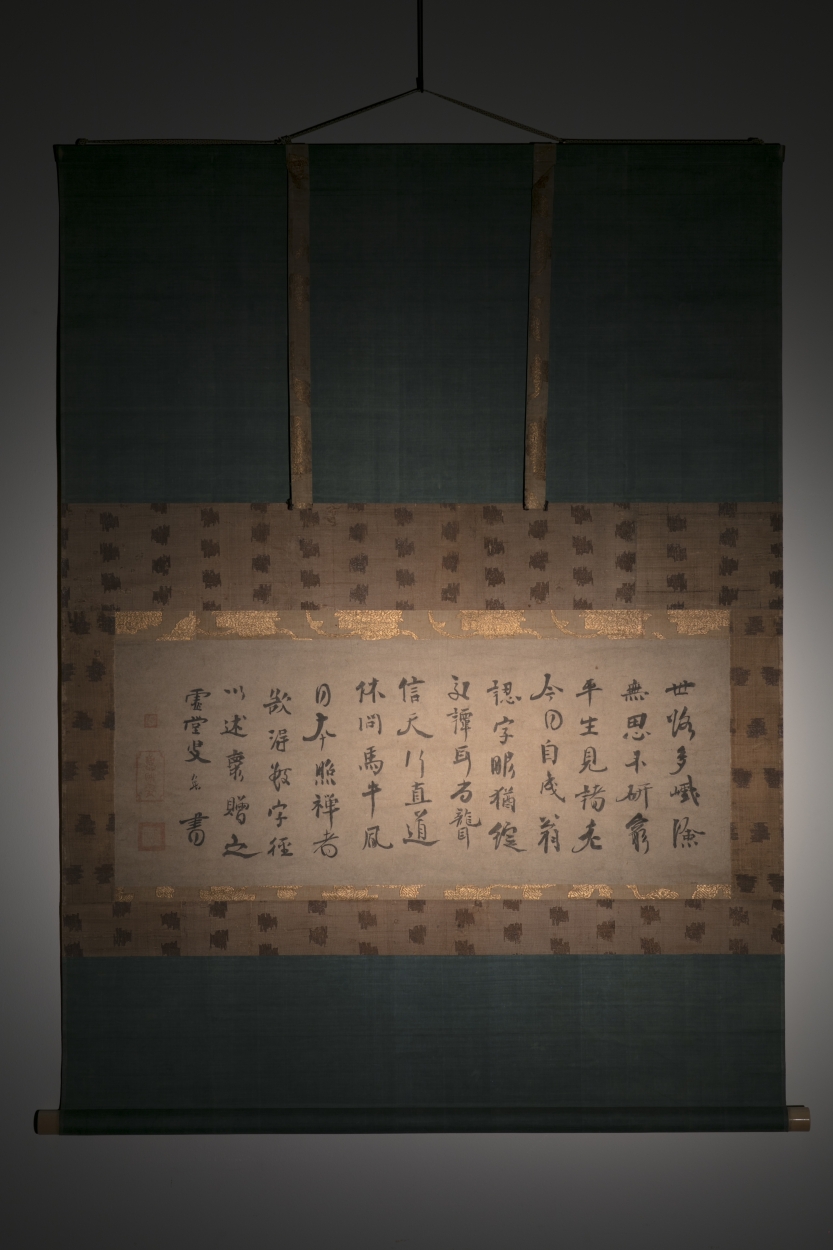 世路多巇險
無思不研窮
平生見諸老
今日自成翁
認字眼猶綻
交譚耳尚聾
信天行直道
休問馬牛風
日本照禪者
欲得數字徑
以述褱贈之
虛堂叟 書